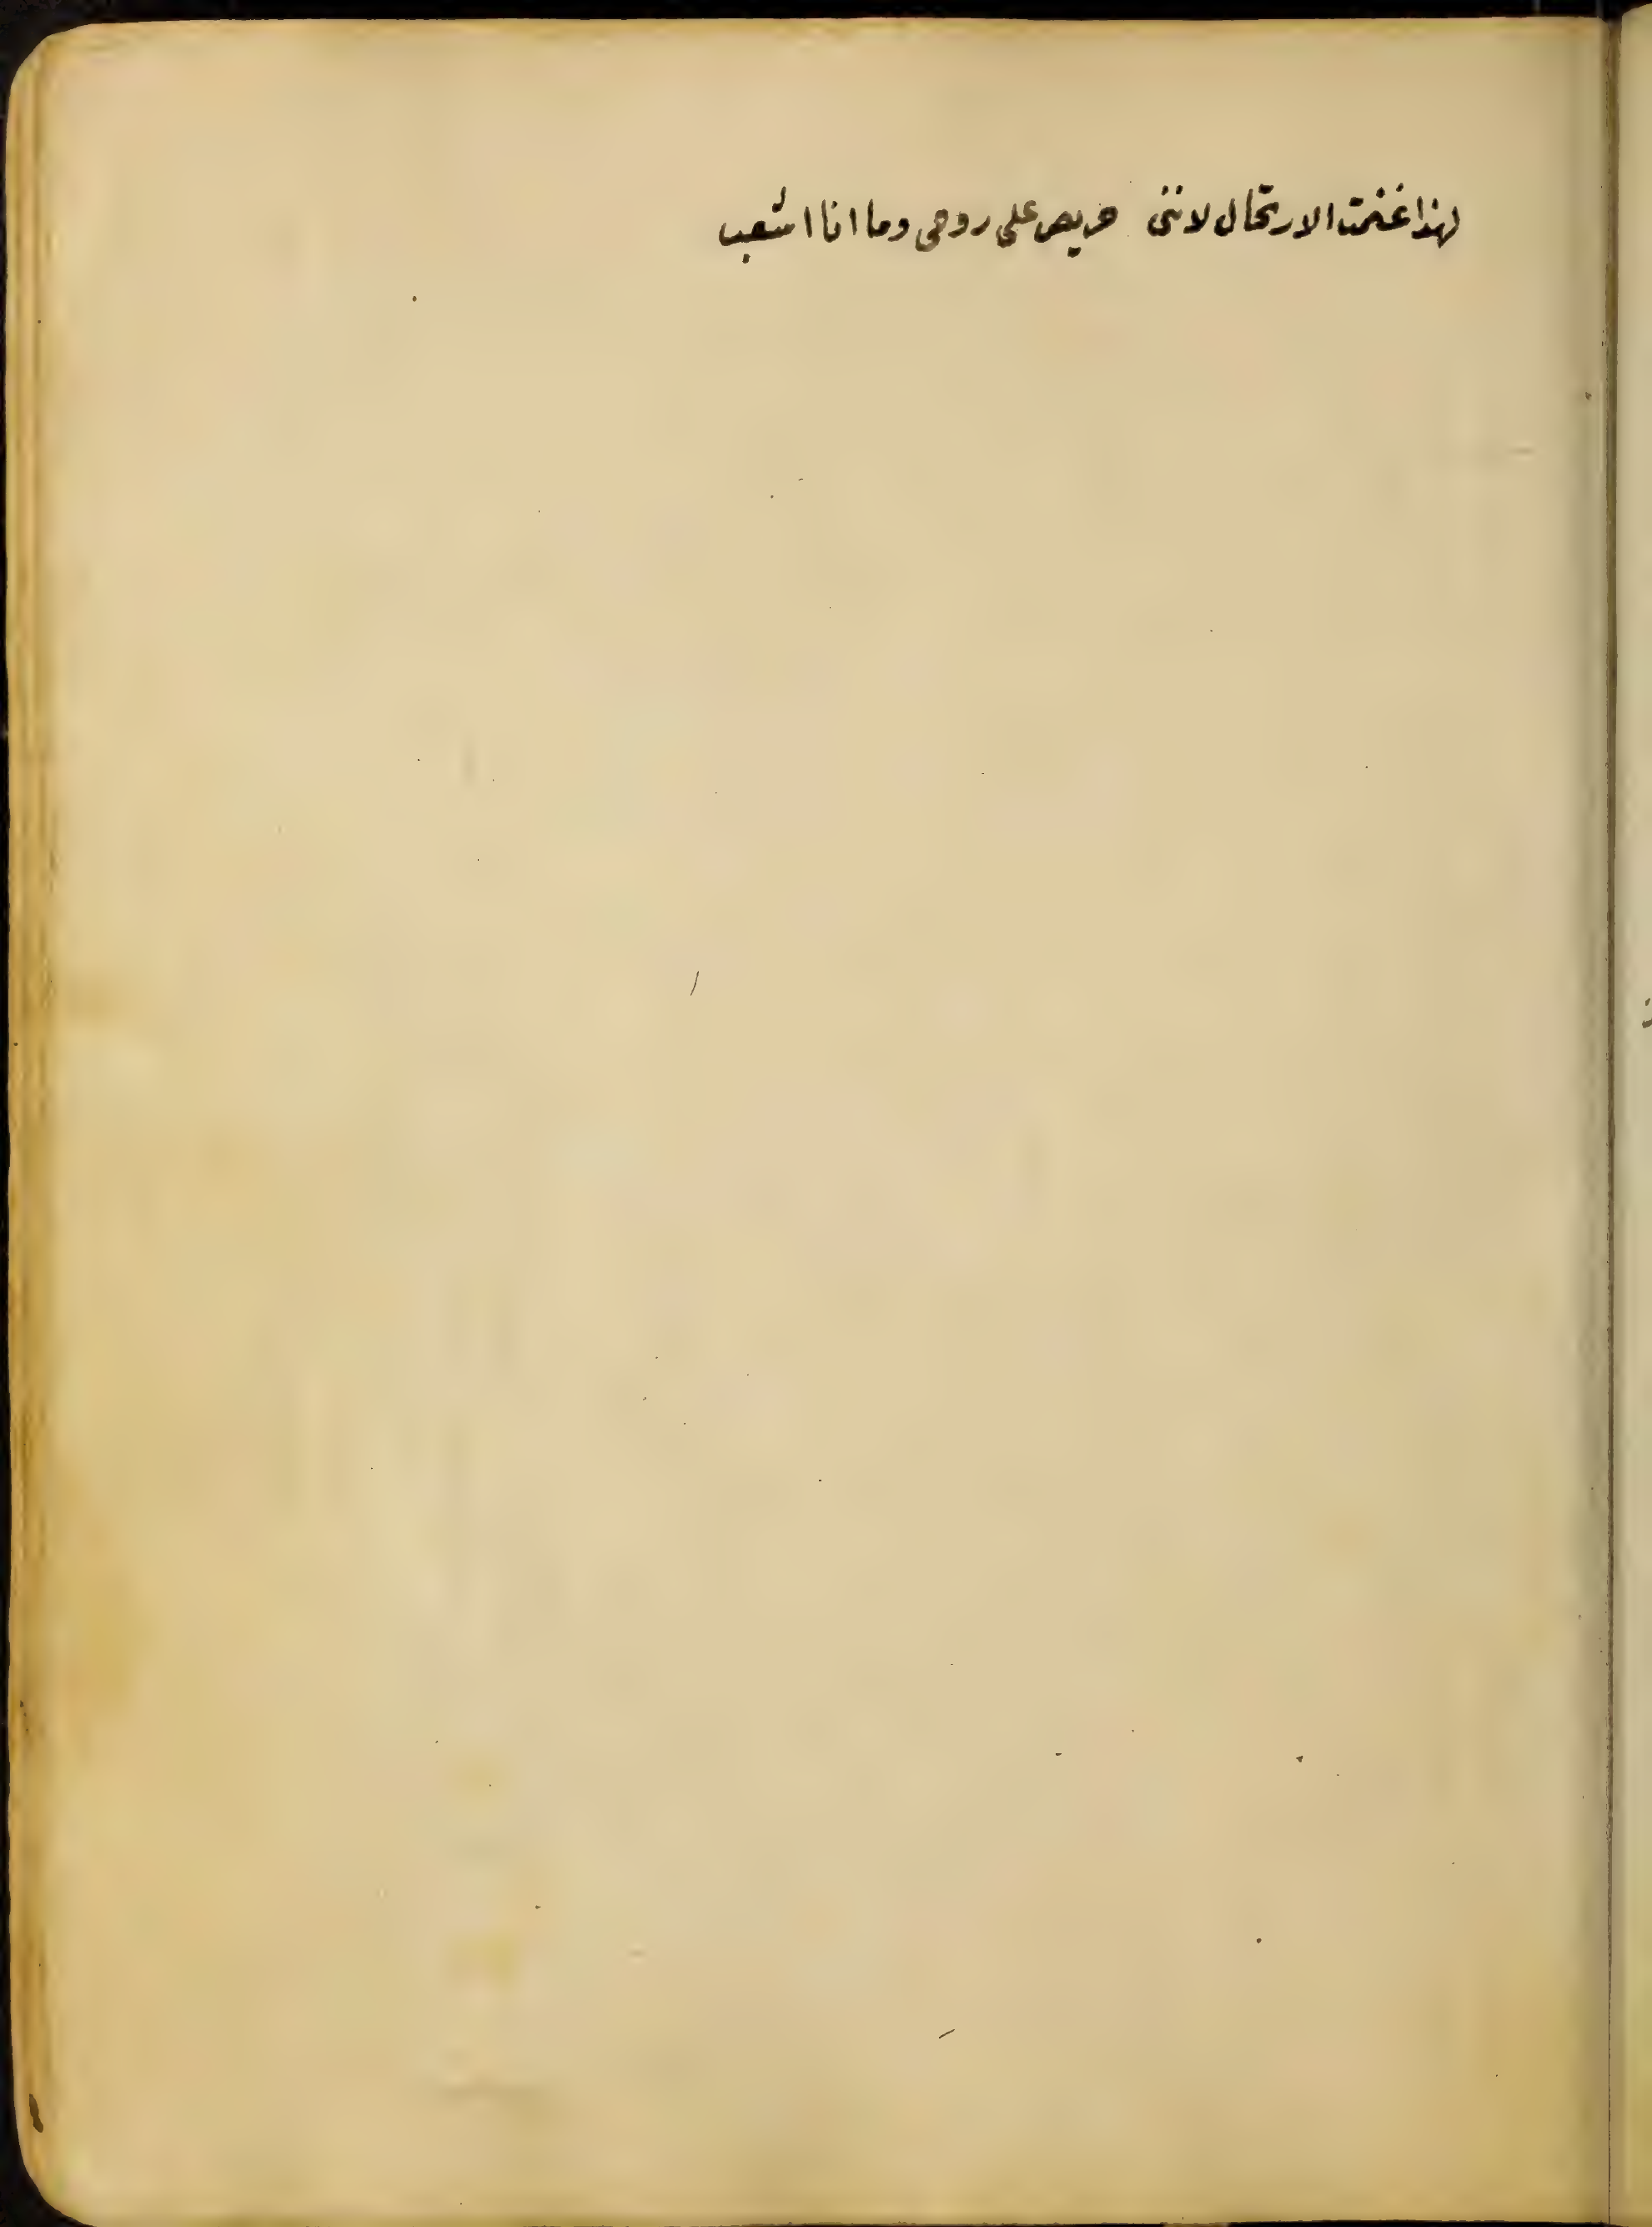 لهذا غنمت الارتحال لاننى حريص على روحى وما انا اشعب